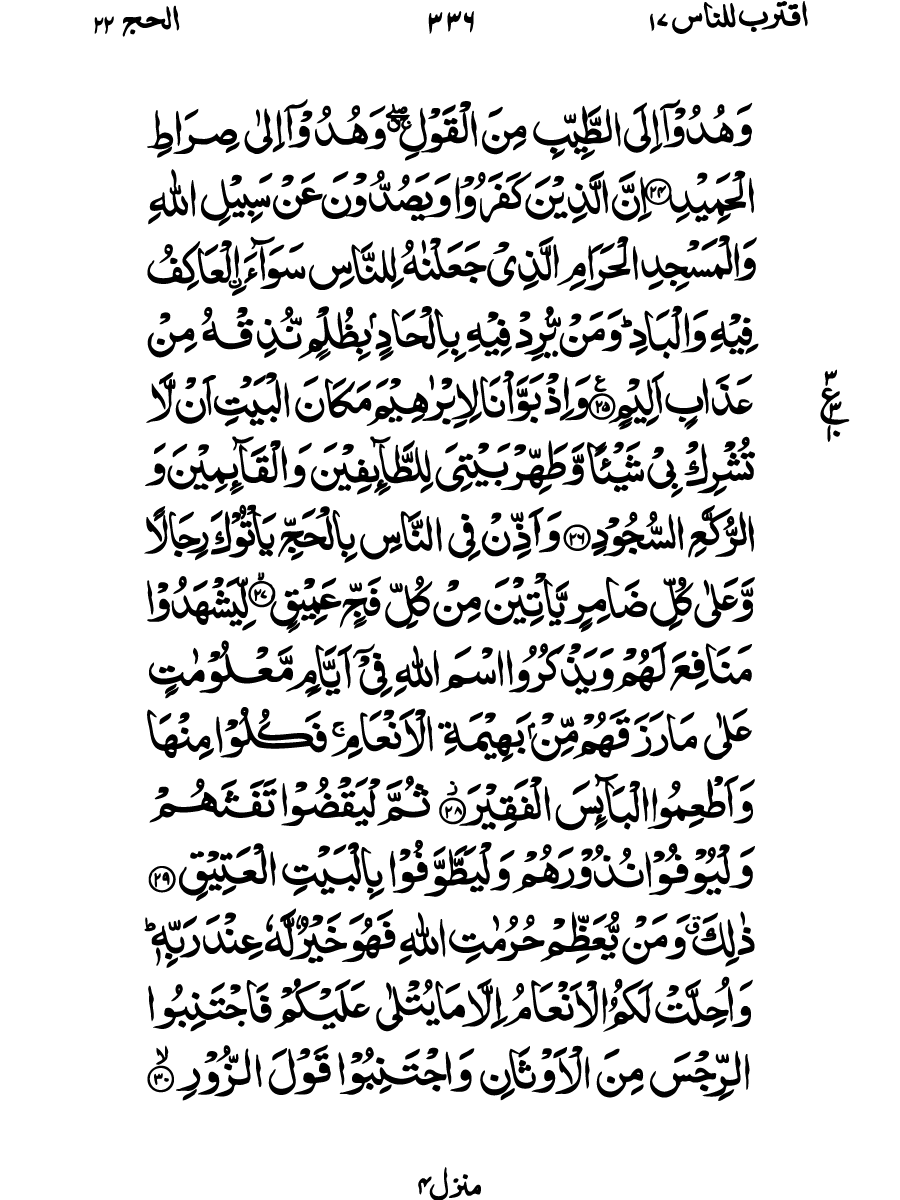 اقترب للناس ١٧
٣٣٦
الحج ٢٢
وَهُدُوْۤا اِلَى الطَّيِّبِ مِنَ الْقَوْلِ ۖۚ وَهُدُوْۤا اِلٰى صِرَاطِ
الْحَمِيْدِ ﴿٢٤﴾ اِنَّ الَّذِيْنَ كَفَرُوْا وَيَصُدُّوْنَ عَنْ سَبِيْلِ اللّٰهِ
وَالْمَسْجِدِ الْحَرَامِ الَّذِيْ جَعَلْنٰهُ لِلنَّاسِ سَوَآءَ ۨالْعَاكِفُ
فِيْهِ وَالْبَادِ ؕ وَمَنْ يُّرِدْ فِيْهِ بِاِلْحَادٍۭ بِظُلْمٍ نُّذِقْهُ مِنْ
عَذَابٍ اَلِيْمٍ ﴿٢٥﴾ ع وَاِذْ بَوَّاْنَا لِاِبْرٰهِيْمَ مَكَانَ الْبَيْتِ اَنْ لَّا
٣
ع ٣
١٠
تُشْرِكْ بِيْ شَيْـًٔا وَّطَهِّرْ بَيْتِيَ لِلطَّآىِٕفِيْنَ وَالْقَآىِٕمِيْنَ وَ
الرُّكَّعِ السُّجُوْدِ ﴿٢٦﴾ وَاَذِّنْ فِي النَّاسِ بِالْحَجِّ يَاْتُوْكَ رِجَالًا
وَّعَلٰى كُلِّ ضَامِرٍ يَّاْتِيْنَ مِنْ كُلِّ فَجٍّ عَمِيْقٍ ﴿٢٧﴾ ۙ لِّيَشْهَدُوْا
مَنَافِعَ لَهُمْ وَيَذْكُرُوا اسْمَ اللّٰهِ فِيْۤ اَيَّامٍ مَّعْلُوْمٰتٍ
عَلٰى مَا رَزَقَهُمْ مِّنْۢ بَهِيْمَةِ الْاَنْعَامِ ۚ فَكُلُوْا مِنْهَا
وَاَطْعِمُوا الْبَآىِٕسَ الْفَقِيْرَ ﴿٢٨﴾ ز ثُمَّ لْيَقْضُوْا تَفَثَهُمْ
وَلْيُوْفُوْا نُذُوْرَهُمْ وَلْيَطَّوَّفُوْا بِالْبَيْتِ الْعَتِيْقِ ﴿٢٩﴾
ذٰلِكَ ۗ وَمَنْ يُّعَظِّمْ حُرُمٰتِ اللّٰهِ فَهُوَ خَيْرٌ لَّهٗ عِنْدَ رَبِّهٖ ؕ
وَاُحِلَّتْ لَكُمُ الْاَنْعَامُ اِلَّا مَا يُتْلٰى عَلَيْكُمْ فَاجْتَنِبُوا
الرِّجْسَ مِنَ الْاَوْثَانِ وَاجْتَنِبُوْا قَوْلَ الزُّوْرِ ﴿٣٠﴾ ۙ
منزل ٤